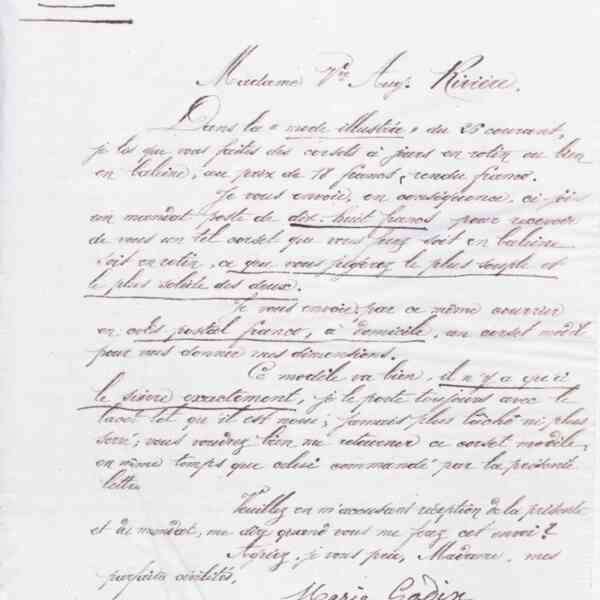 Madame Vve Aug. Rivière.
Dans la "mode illustrée" du 26 courant,
je lis que vous faites des corsets à jours en rotin ou bien
en baleine, au prix de 18 francs, rendu franco.
Je vous envoie, en conséquence, ci joint
un mandat poste de dix-huit francs pour recevoir
de vous un tel corset que vous ferez soit en baleine
soit en rotin, ce que vous jugerez le plus souple et
le plus solide des deux.
Je vous envoie par ce même courrier
en colis postal franco, à domicile, un corset modèle
pour vous donner mes dimensions.
Ce modèle va bien, il n'y a qu'à
le suivre exactement, je le porte toujours avec le
lacet tel qu'il est noué; jamais plus lâché ni plus
serré; vous voudrez bien me retourner ce corset modèle,
en même temps que celui commandé par la présente
lettre
Veuillez en m'accusant réception de la présente
et du mandat, me dire quand vous me ferez cet envoi?
Agréez, je vous prie, Madame, mes
parfaites civilités,
Marie